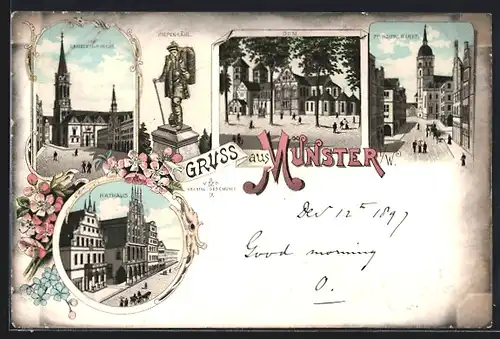 LAMBERTIKIRCHE
KIEPENKERL
DOM
GRUSS aus MÜNSTER i/W.
RATHAUS
Dec 12th 1897
Good morning
O.